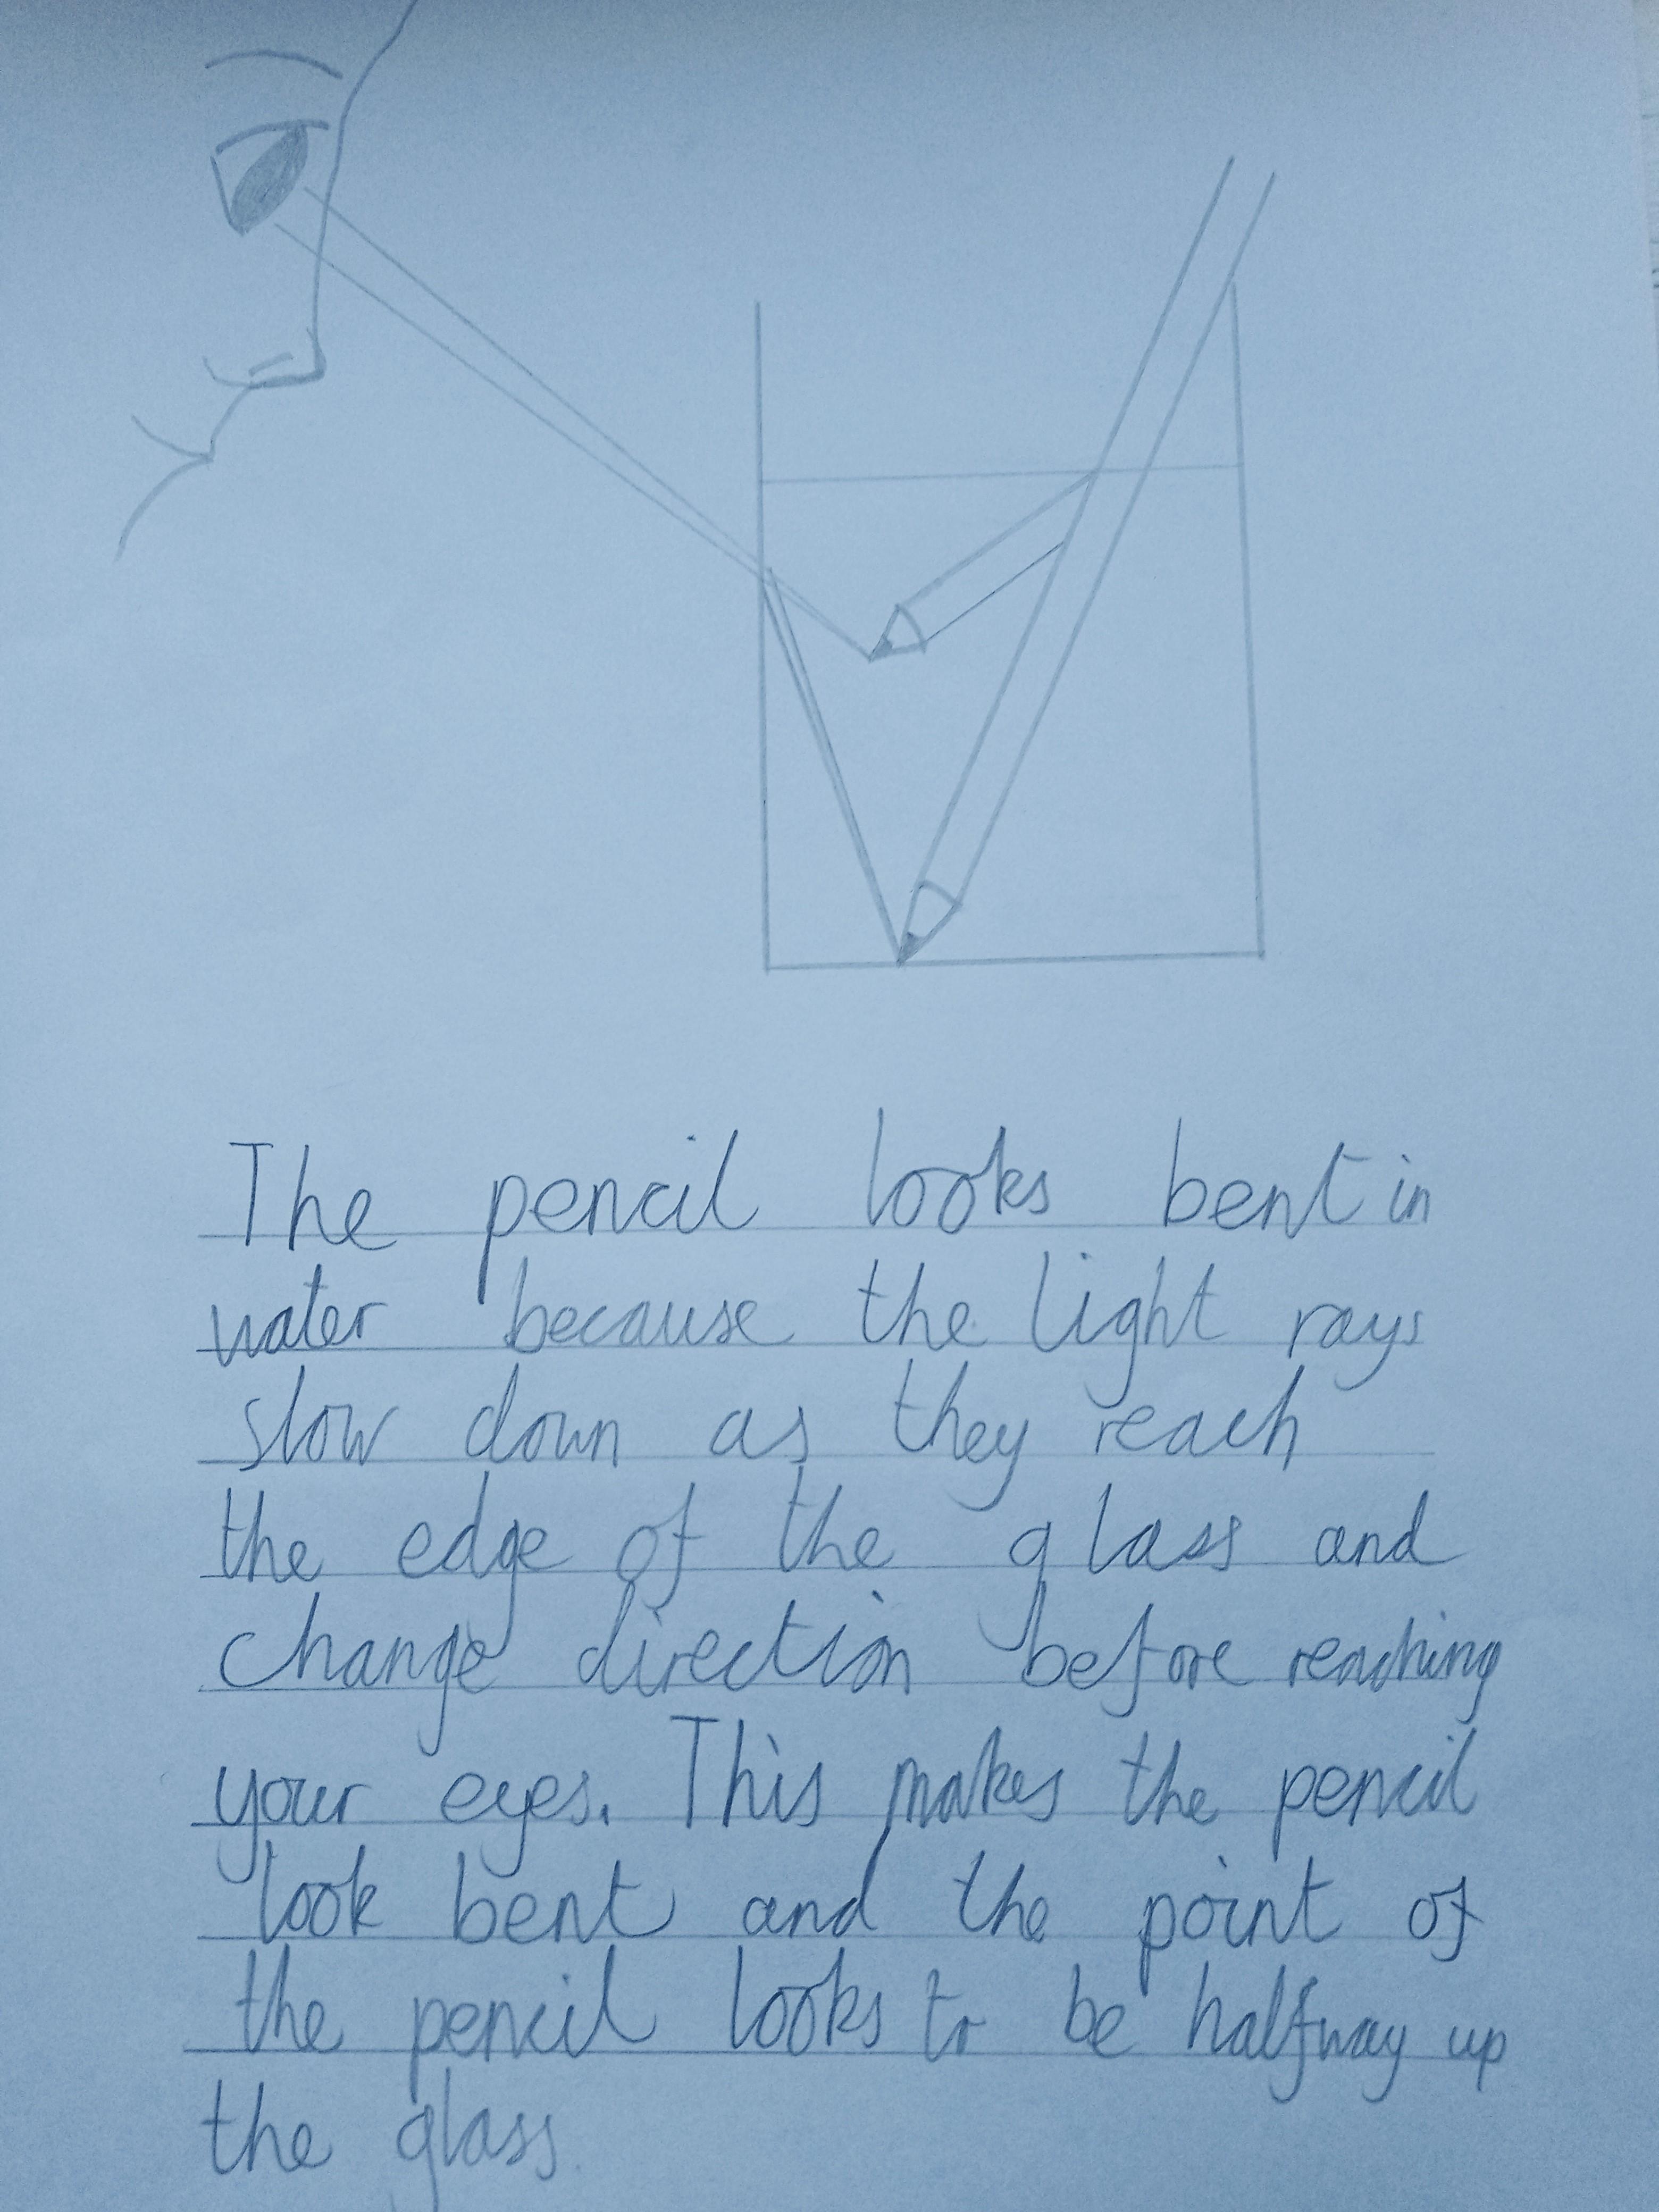 The pencil looks bent in
water because the light rays
slow down as they reach
the edge of the glass and
change direction before reaching
your eyes. This makes the pencil
look bent and the point of
the pencil looks to be halfway up
the glass.